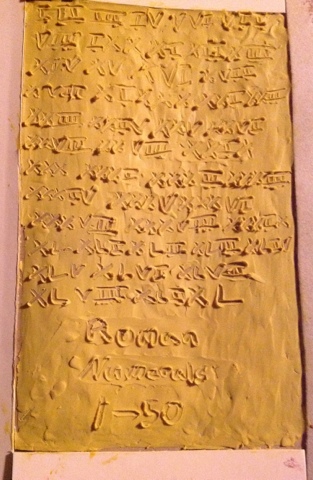 I, II, III, IV V VI VII
VIII IX X XI XII XIII
XIV XV XVI XVII
XVIII XIX XX XXI XXII
XXIII XXIV XXV XXVI
XXVII XXVIII XXIX
XXX XXXI XXXII XXXIII
XXXIV XXXV XXXVI
XXXVII XXXVIII XXXIX
XL XLI XLII XLIII XLIV
XLV XLVI XLVII
XLVIII XLIX L
Roman
Numerals
1-50